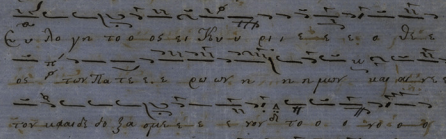 Ευ λο γη το ο ος ει Κυ υ ρι ι ε ε ε ο θε ε
ος των Πα τε ε ε ρω ων η η η μων και αι νε
τον και δε δο ξα σμε ε ε ε νον το ο ο ο ο